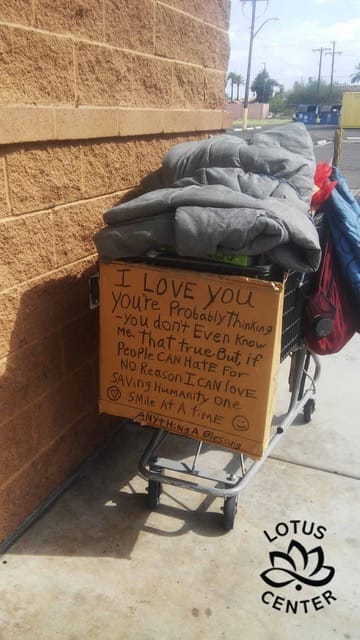 I LOVE YOU
You're Probably thinking
~you don't Even Know
Me. that true. But, if
People CAN HATE For
NO Reason I CAN LOVE
SAVING HUMANITY ONE
SMILE AT A TIME
ANYTHING A Blessing
LOTUS
CENTER